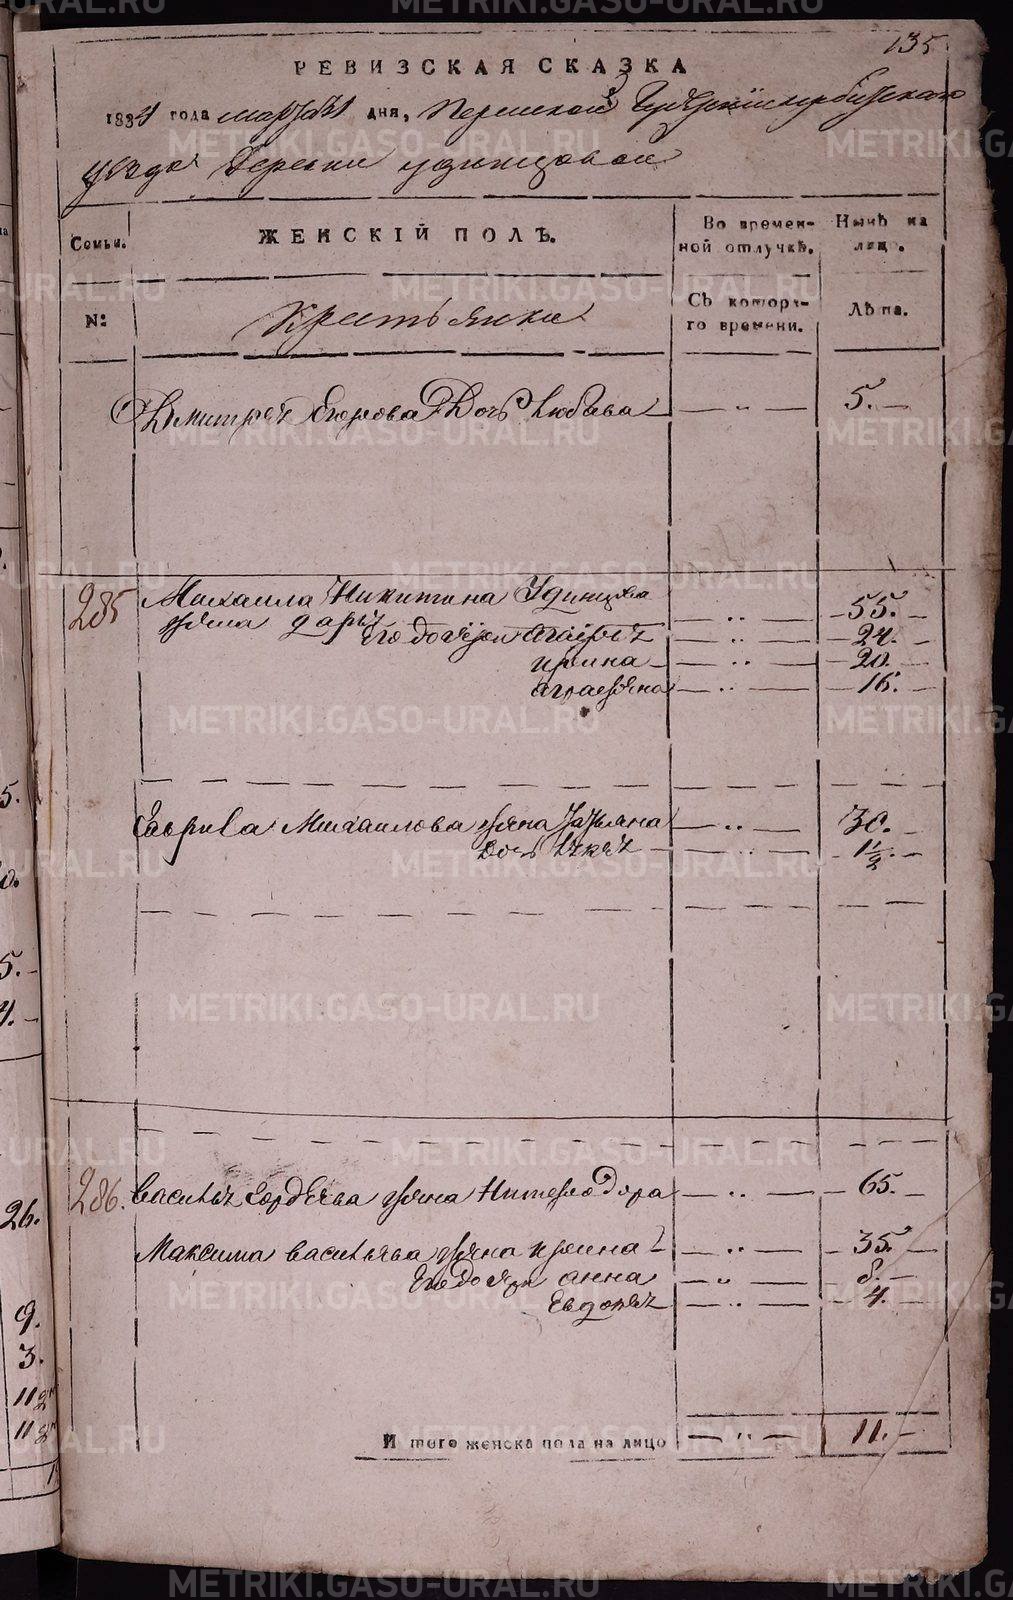 135
РЕВИЗСКАЯ СКАЗКА
1834 года марта 1 дня, Пермской Губернии ирбитскаго
уезда деревни удинцовой
Семьи.
ЖЕНСКІЙ ПОЛЪ.
Во времен-
ной отлучкѣ.
Нынѣ на
лицо.
№:
Крестьянки
Съ котора-
го времени.
Лѣта.
Дмитрея Егорова Дочь Любава — " — 5. —
285 Михаила Никитина Удинцова
жена дарья — " — 55. —
Его дочери — " — 24. —
ирина — " — 20. —
аграфена — " — 16. —
Гаврила Михаилова жена Татьяна — " — 30. —
Дочь — " — 1 1/2. —
286. василья Гордеева жена Нимфодора — " — 65. —
Максима васильева жена ирина — " — 35. —
Его дочери анна — " — 8. —
Евдокея — " — 4. —
И того женска пола на лицо — " — 11. —
5.
5. —
4. —
26.
9.
3.
METRIKI.GASO-URAL.RU